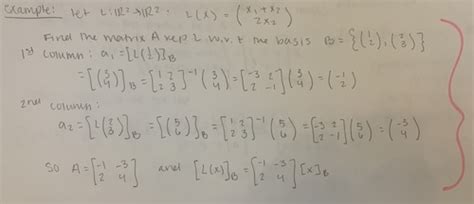 Example: Let L: ℝ² → ℝ² : L(x) = (x₁ + x₂ / 2x₂)
Find the matrix A rep L w.r.t the basis B = {(1 / 2), (2 / 3)}
1st column: a₁ = [L(1 / 2)]_B
= [(3 / 4)]_B = [1 2 / 2 3]⁻¹ (3 / 4) = [-3 2 / 2 -1] (3 / 4) = (-1 / 2)
2nd column:
a₂ = [L(2 / 3)]_B = [(5 / 6)]_B = [1 2 / 2 3]⁻¹ (5 / 6) = [-3 2 / 2 -1] (5 / 6) = (-3 / 4)
So A = [-1 -3 / 2 4] and [L(x)]_B = [-1 -3 / 2 4] [x]_B